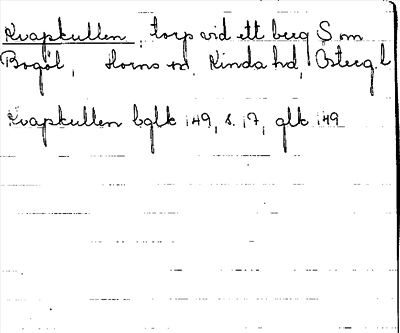 Kvapkullen, torp vid ett berg S om
Bogöl, Horns sn. Kinda hd, Österg. l
Kvapkullen bglk 149, s. 17, glk 149